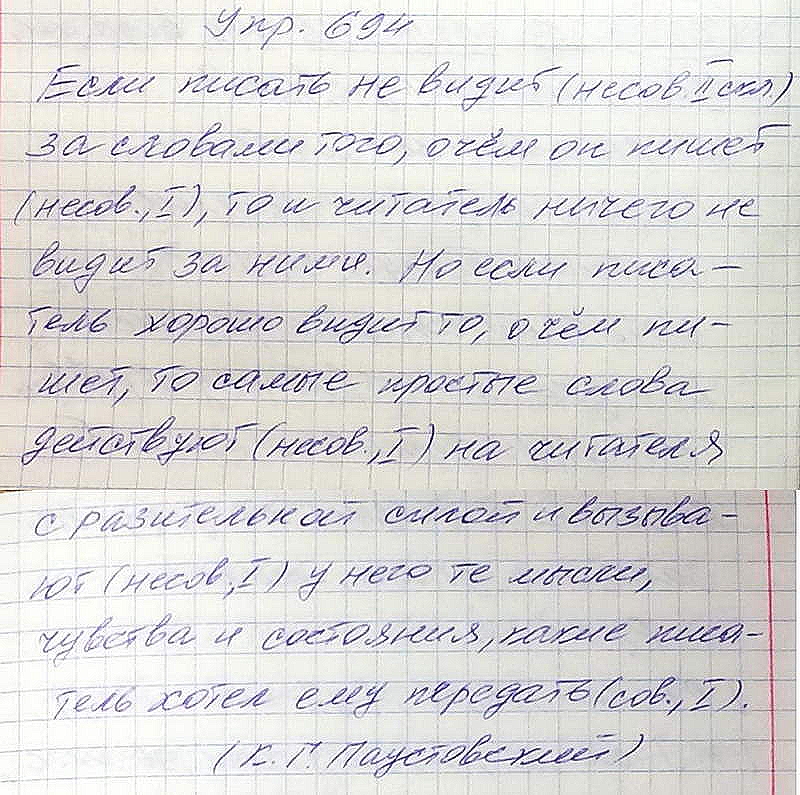 Упр. 694
Если писать не видит (несов. II скл)
за словами того, о чём он пишет
(несов., I), то и читатель ничего не
видит за ними. Но если писа-
тель хорошо видит то, о чём пи-
шет, то самые простые слова
действуют (несов., I) на читателя
с разительной силой и вызыва-
ют (несов., I) у него те мысли,
чувства и состояния, какие писа-
тель хотел ему передать (сов., I).
(К. Г. Паустовский)